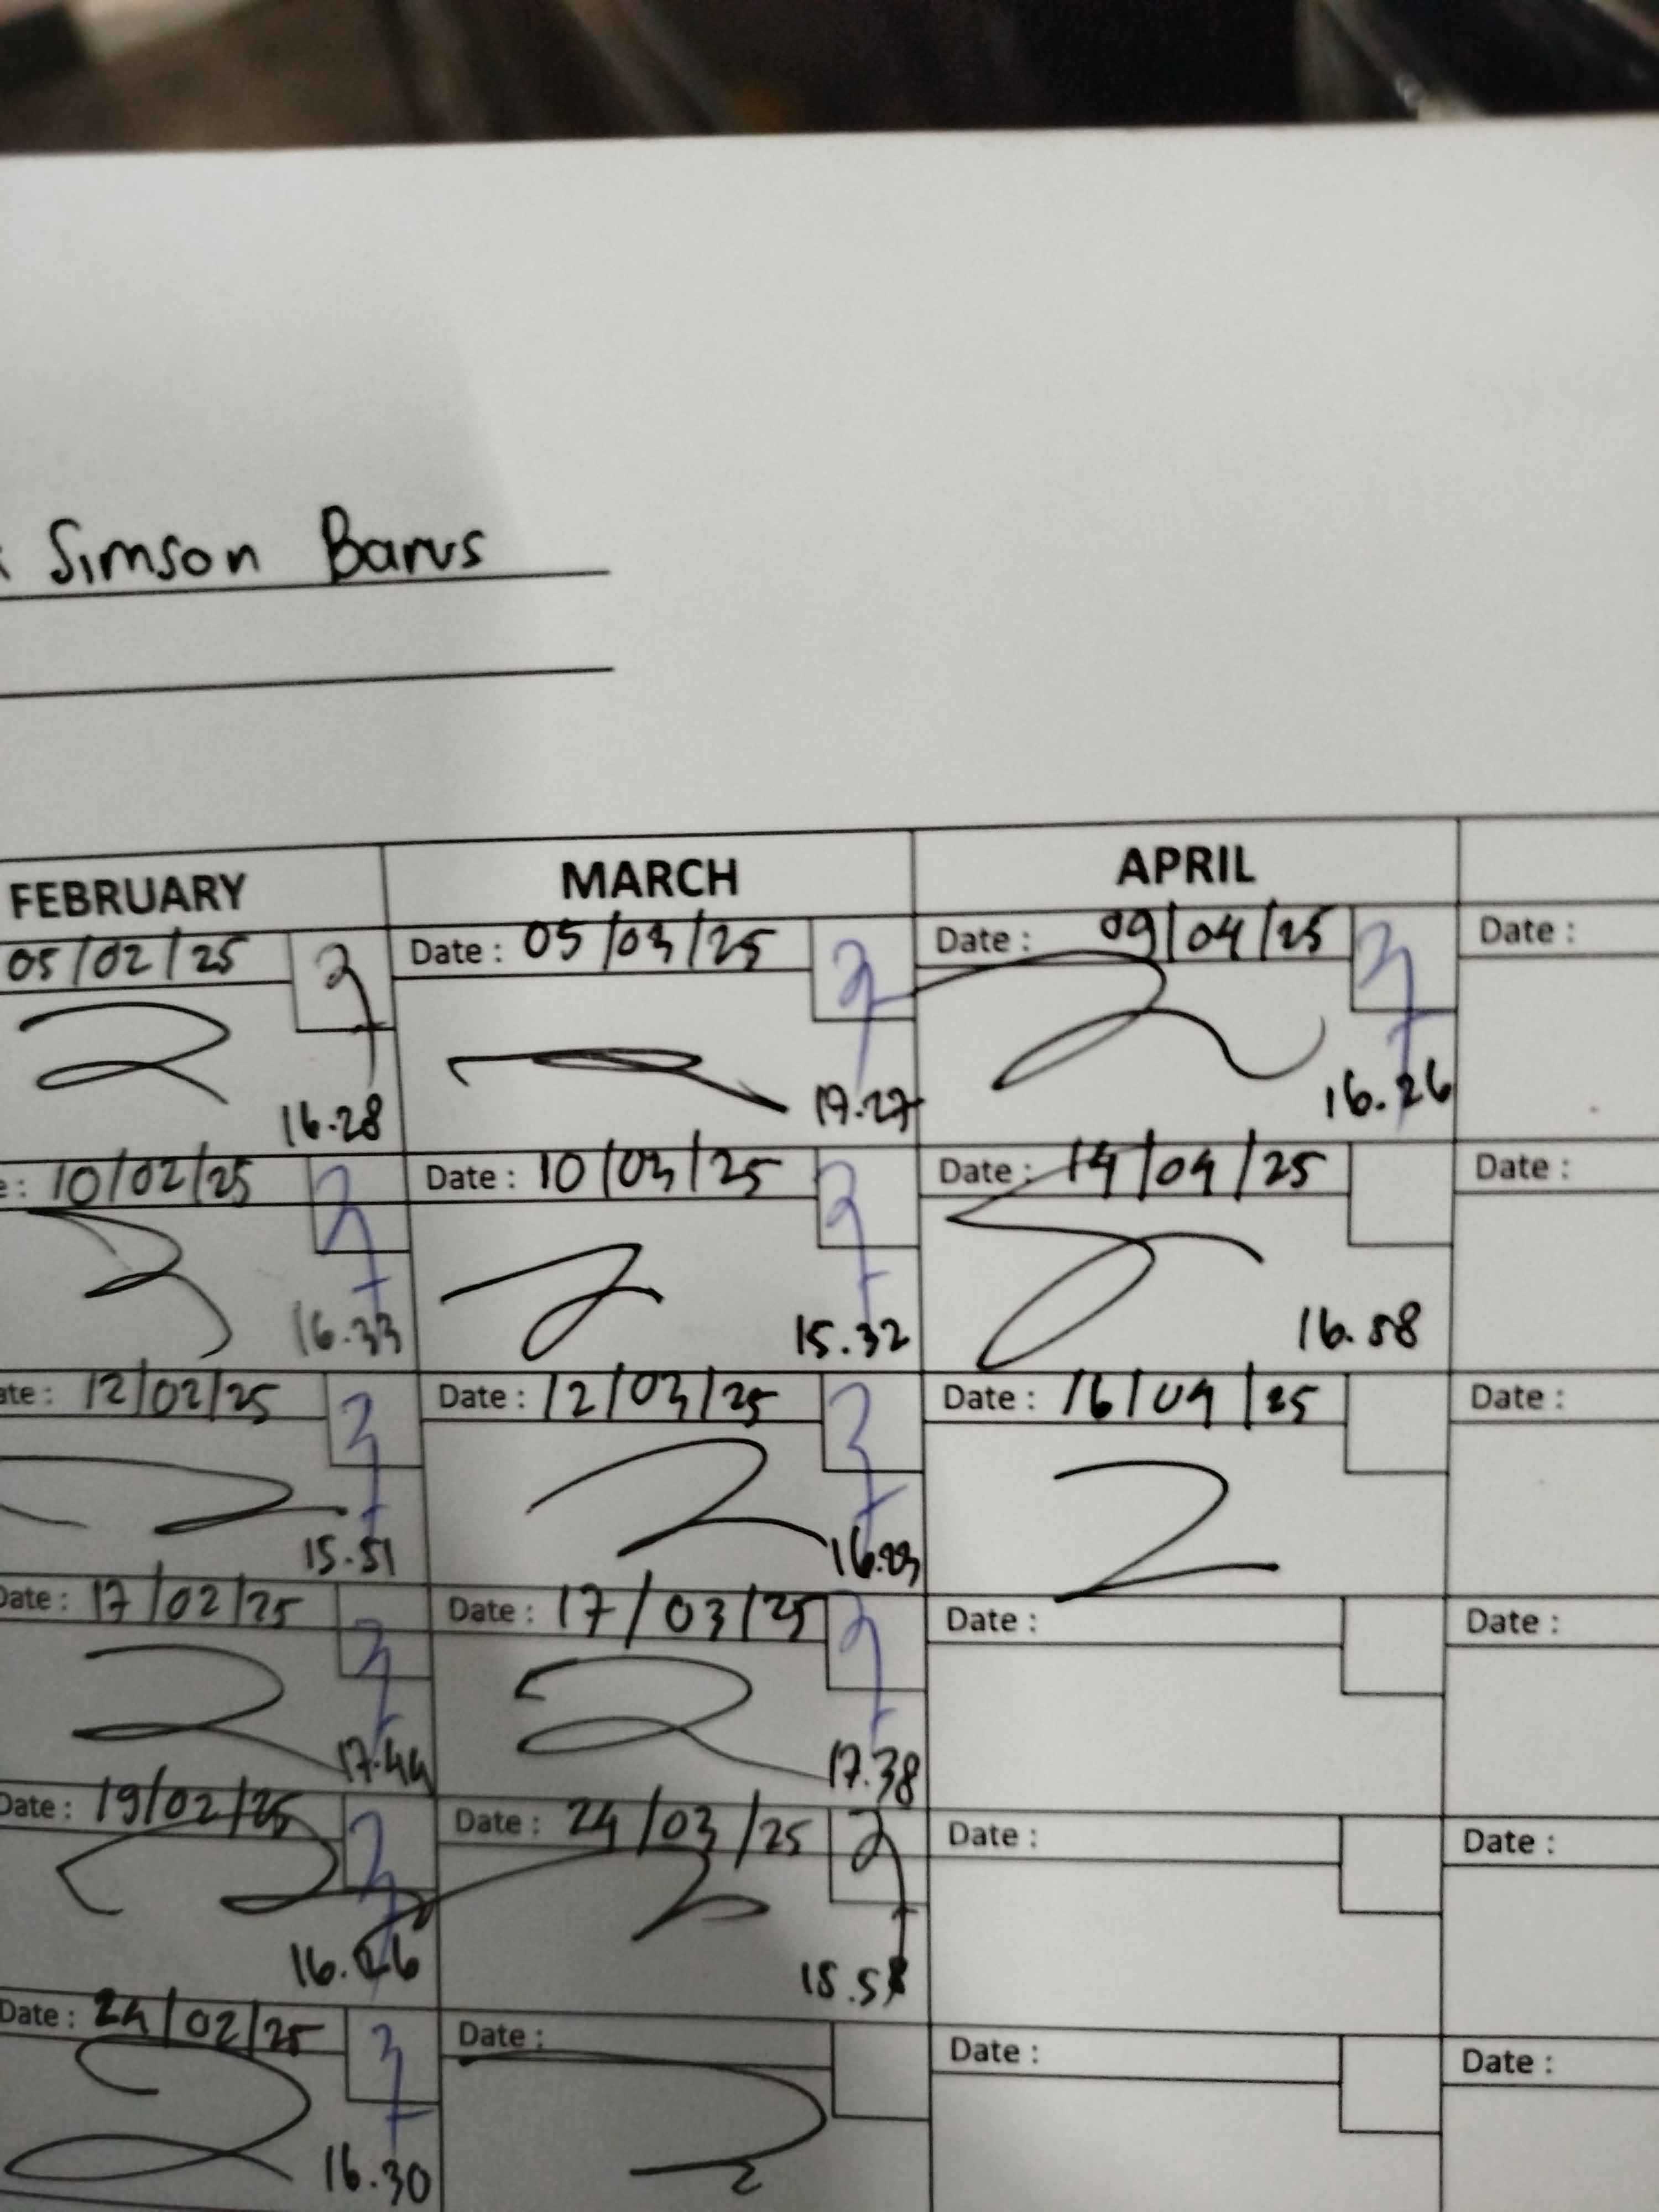 Simson Barus
FEBRUARY MARCH APRIL
05/02/25 Date : 05/03/25 Date : 09/04/25 Date :
16.28 17.27 16.26
10/02/25 Date : 10/03/25 Date : 14/04/25 Date :
16.33 15.32 16.58
12/02/25 Date : 12/03/25 Date : 16/04/25 Date :
15.51
Date : 17/02/25 Date : 17/03/25 Date : Date :
17.44 17.38
Date : 19/02/25 Date : 24/03/25 Date : Date :
Date : 24/02/25 Date : Date : Date :
16.30